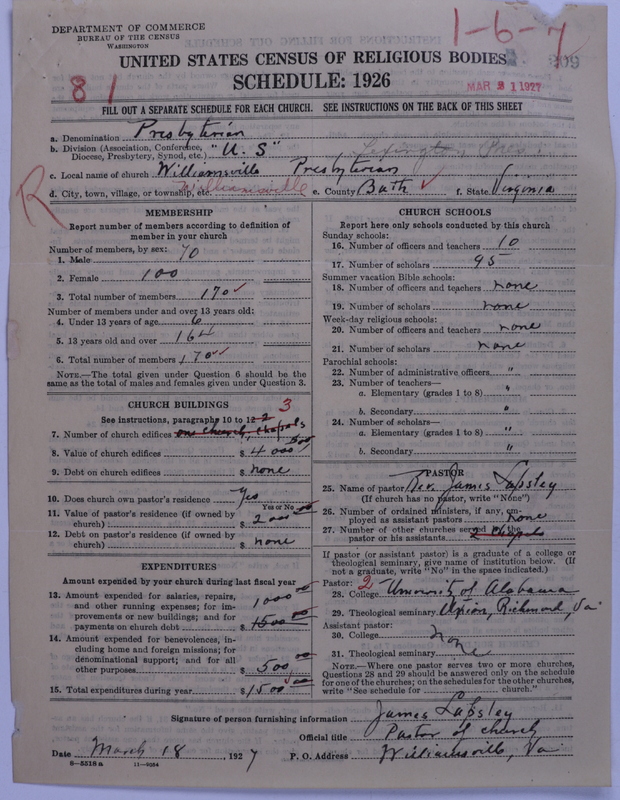 DEPARTMENT OF COMMERCE
BUREAU OF THE CENSUS
WASHINGTON
1-6-7
UNITED STATES CENSUS OF RELIGIOUS BODIES
SCHEDULE: 1926
81
MAR 31 1927
FILL OUT A SEPARATE SCHEDULE FOR EACH CHURCH. SEE INSTRUCTIONS ON THE BACK OF THIS SHEET
a. Denomination Presbyterian
b. Division (Association, Conference, Diocese, Presbytery, Synod, etc.) "U. S" Lexington Pres.
c. Local name of church Williamsville Presbyterian
d. City, town, village, or township, etc. Williamsville e. County Bath ✓ f. State Virginia
R
MEMBERSHIP
Report number of members according to definition of member in your church
Number of members, by sex:
1. Male 70
2. Female 100
3. Total number of members 170 ✓
Number of members under and over 13 years old:
4. Under 13 years of age 6
5. 13 years old and over 164
6. Total number of members 170 ✓
NOTE.—The total given under Question 6 should be the same as the total of males and females given under Question 3.
CHURCH BUILDINGS
See instructions, paragraphs 10 to 12
3
7. Number of church edifices one church, 2 chapels
8. Value of church edifices $ 4000 00
9. Debt on church edifices $ none
10. Does church own pastor's residence Yes
Yes or No
11. Value of pastor's residence (if owned by church) $ 2000 00
12. Debt on pastor's residence (if owned by church) $ none
EXPENDITURES
Amount expended by your church during last fiscal year
13. Amount expended for salaries, repairs, and other running expenses; for improvements or new buildings; and for payments on church debt 1000 00 $ 1500 00
14. Amount expended for benevolences, including home and foreign missions; for denominational support; and for all other purposes $ 500 00
15. Total expenditures during year $ 1500 00
CHURCH SCHOOLS
Report here only schools conducted by this church
Sunday schools:
16. Number of officers and teachers 10
17. Number of scholars 95
Summer vacation Bible schools:
18. Number of officers and teachers none
19. Number of scholars none
Week-day religious schools:
20. Number of officers and teachers none
21. Number of scholars none
Parochial schools:
22. Number of administrative officers "
23. Number of teachers—
a. Elementary (grades 1 to 8) "
b. Secondary "
24. Number of scholars—
a. Elementary (grades 1 to 8) "
b. Secondary "
PASTOR
25. Name of pastor Rev. James Lapsley
(If church has no pastor, write "None")
26. Number of ordained ministers, if any, employed as assistant pastors none
27. Number of other churches served by the pastor or his assistants 2 chapels
If pastor (or assistant pastor) is a graduate of a college or theological seminary, give name of institution below. (If not a graduate, write "No" in the space indicated.)
Pastor: 2
28. College University of Alabama
29. Theological seminary Union, Richmond, Va
Assistant pastor:
30. College none
31. Theological seminary
NOTE.—Where one pastor serves two or more churches, Questions 28 and 29 should be answered only on the schedule for one of the churches; on the schedules for the other churches, write "See schedule for ............ church."
Signature of person furnishing information James Lapsley
Official title Pastor of church
Date March 18, 1927 P. O. Address Williamsville, Va
8—5518 a 11—9264